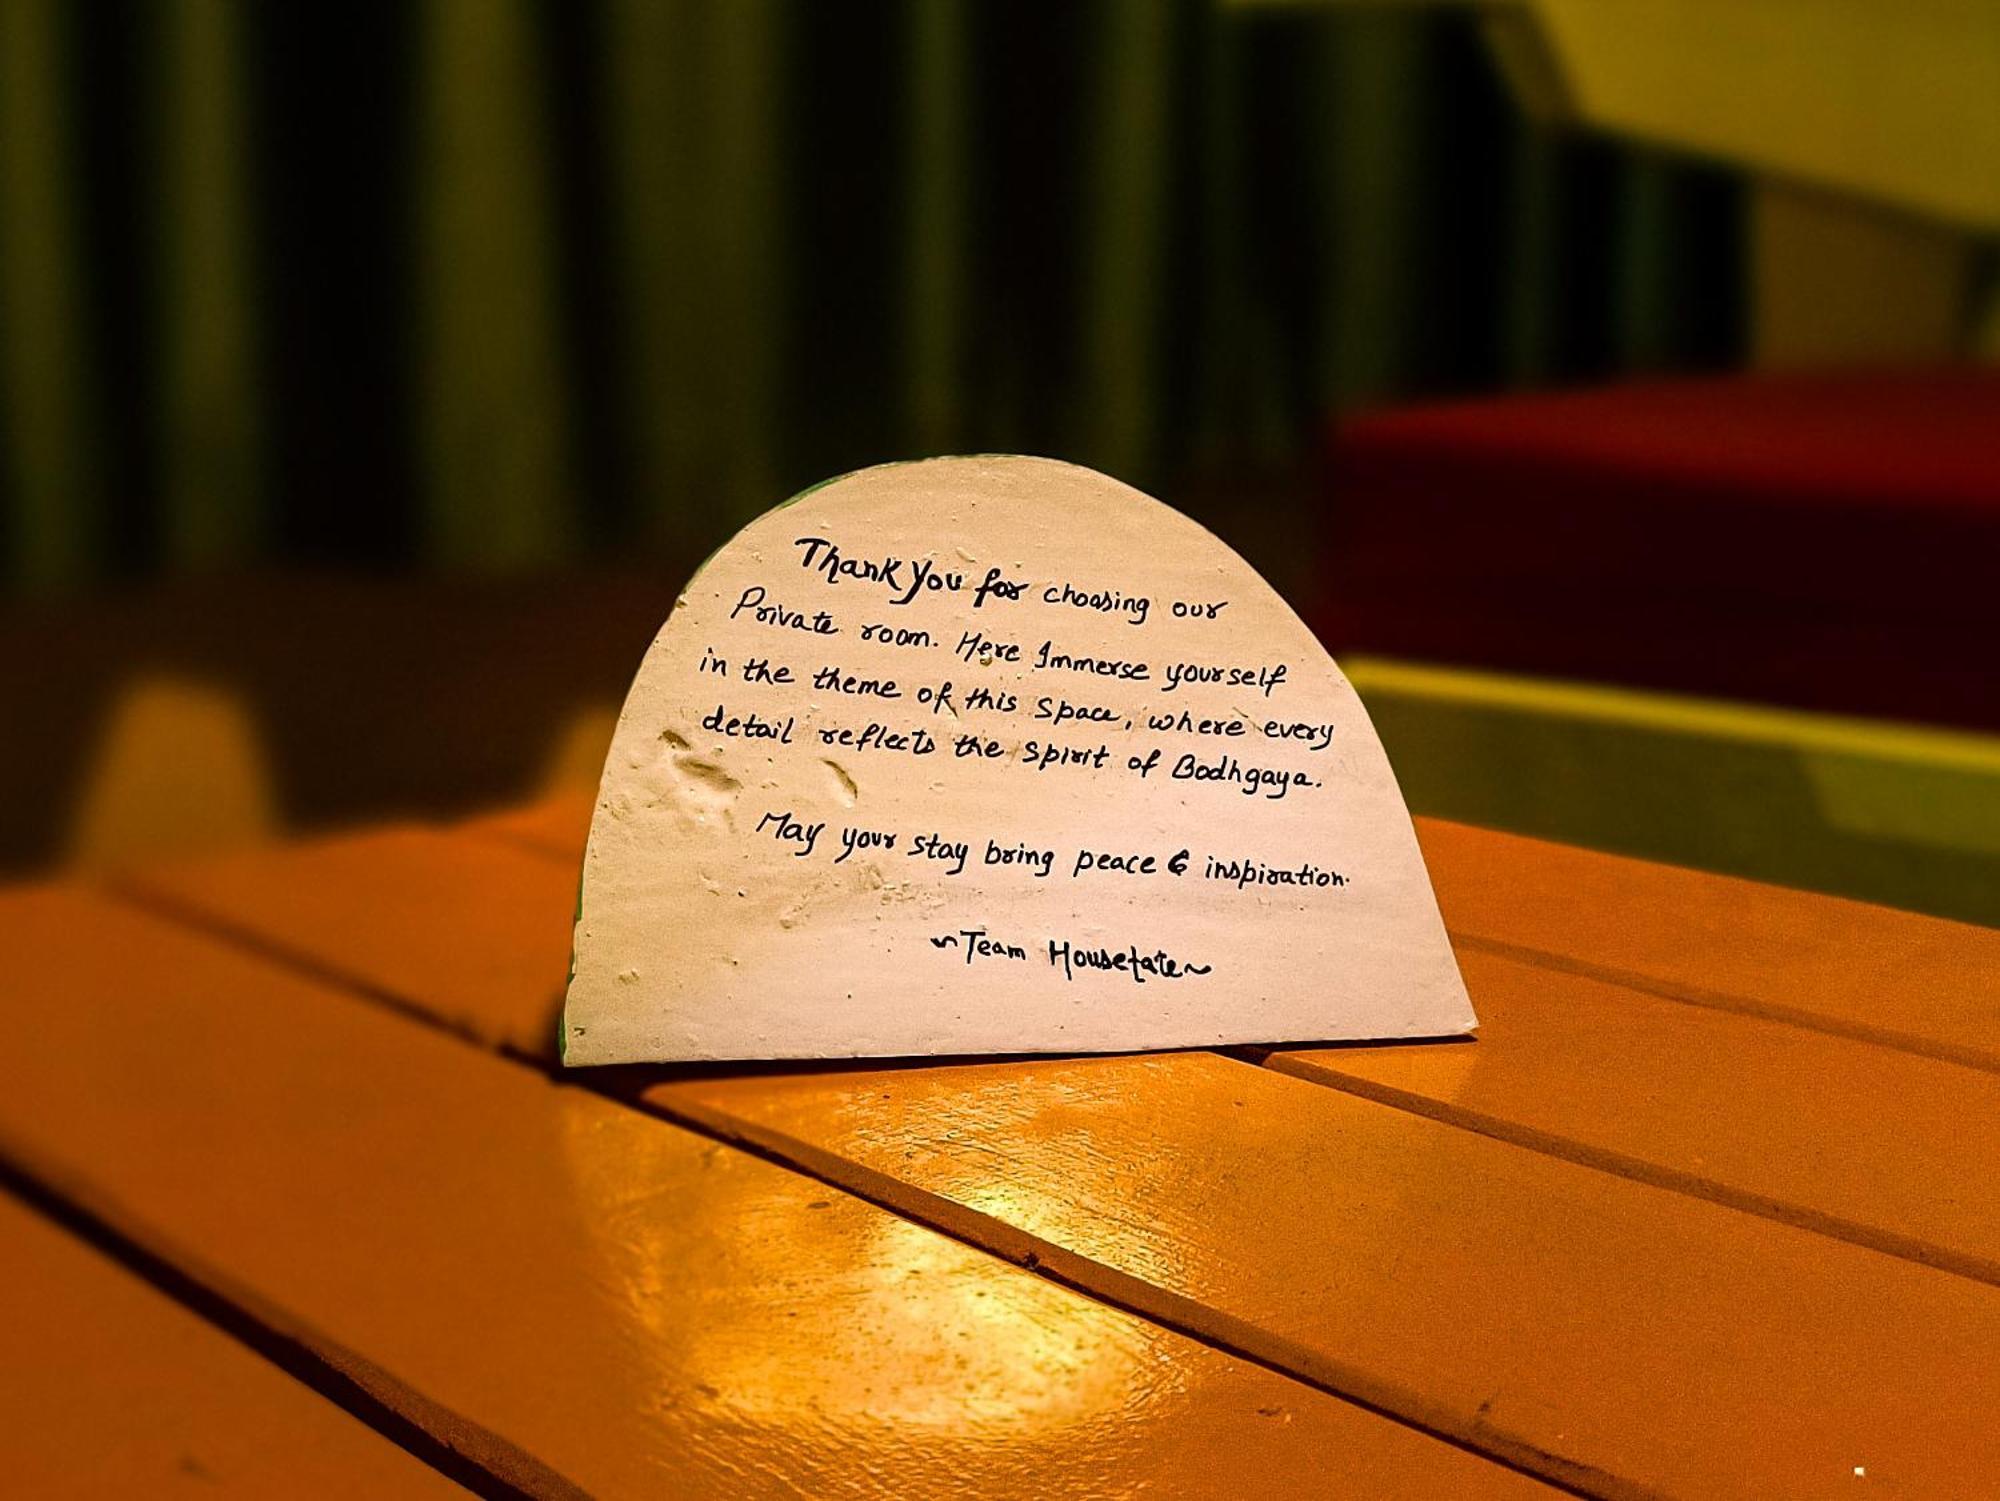 Thank You for choosing our
Private room. Here Immerse yourself
in the theme of this space, where every
detail reflects the spirit of Bodhgaya.
May your stay bring peace & inspiration.
~Team Housefate~